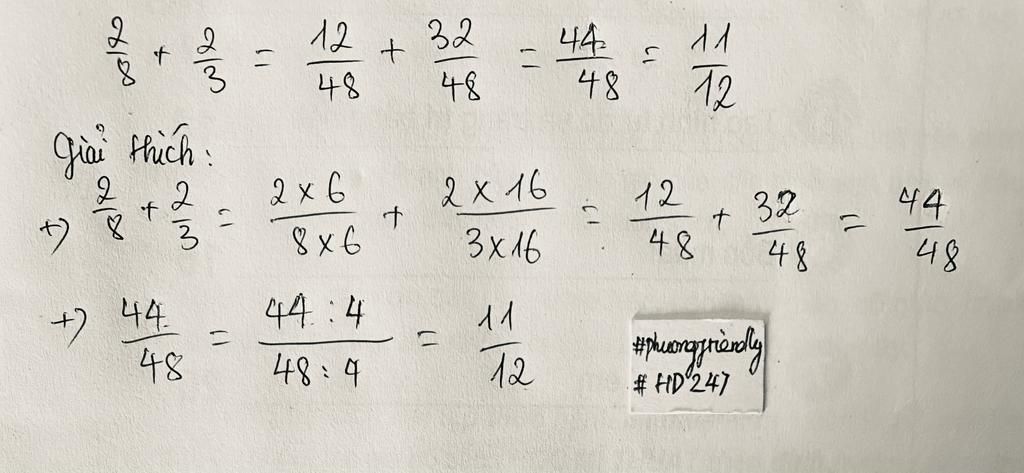 2/8 + 2/3 = 12/48 + 32/48 = 44/48 = 11/12
Giải thích:
+) 2/8 + 2/3 = 2 x 6/8 x 6 + 2 x 16/3 x 16 = 12/48 + 32/48 = 44/48
+) 44/48 = 44 : 4/48 : 4 = 11/12
#phuongfriendly
# HD247